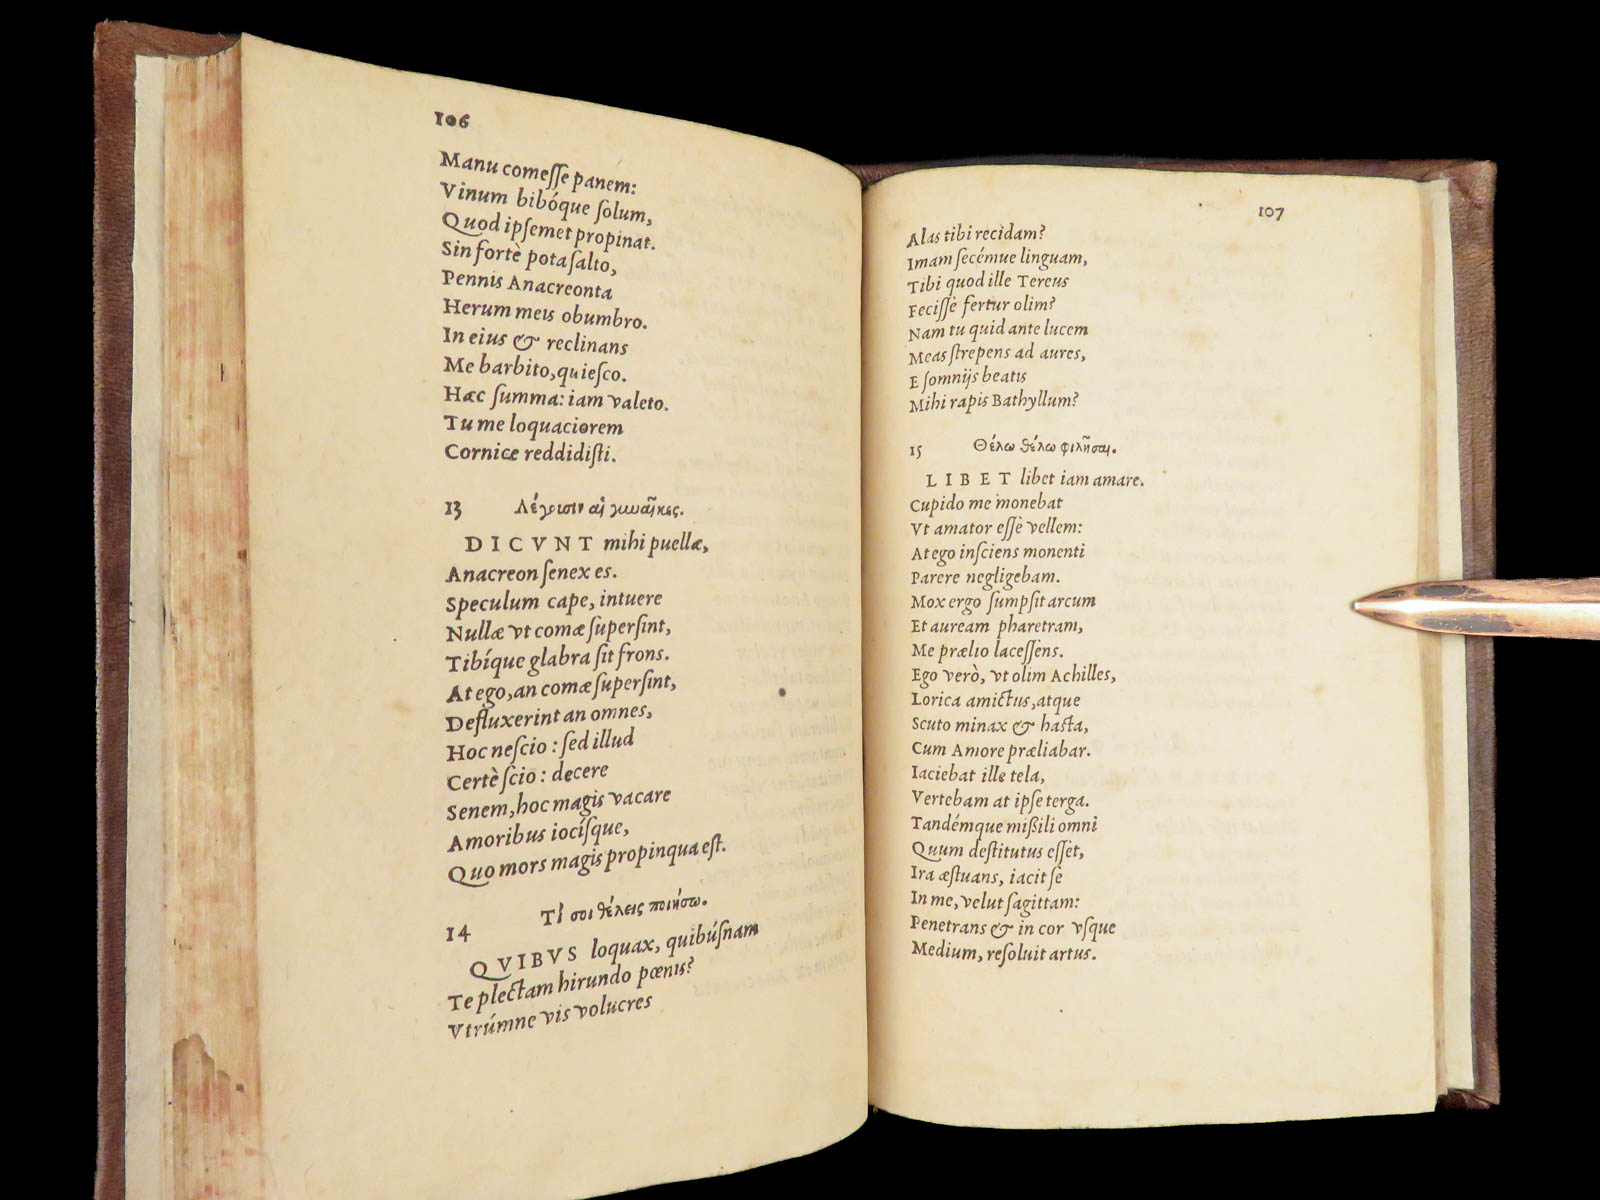 106
Manu comeſſe panem:
Vinum bibóque ſolum,
Quod ipſemet propinat.
Sin fortè pota ſalto,
Pennis Anacreonta
Herum meis obumbro.
In eius & reclinans
Me barbito, quieſco.
Hæc ſumma: iam valeto.
Tu me loquaciorem
Cornice reddidiſti.
13 Λέγουσιν αἱ γυναῖκες.
DICVNT mihi puellæ,
Anacreon ſenex es.
Speculum cape, intuere
Nullæ vt comæ ſuperſint,
Tibíque glabra ſit frons.
At ego, an comæ ſuperſint,
Defluxerint an omnes,
Hoc neſcio: ſed illud
Certè ſcio: decere
Senem, hoc magis vacare
Amoribus iocíſque,
Quo mors magis propinqua eſt.
14 Τί σοι θέλεις ποιήσω.
QVIBVS loquax, quibúſnam
Te plectam hirundo pœnis?
Vtrúmne vis volucres
107
Alas tibi recidam?
Imam ſecémue linguam,
Tibi quod ille Tereus
Feciſſe fertur olim?
Nam tu quid ante lucem
Meas ſtrepens ad aures,
E ſomnijs beatis
Mihi rapis Bathyllum?
15 Θέλω θέλω φιλῆσαι.
LIBET libet iam amare.
Cupido me monebat
Vt amator eſſe vellem:
At ego inſciens monenti
Parere negligebam.
Mox ergo ſumpſit arcum
Et auream pharetram,
Me prælio laceſſens.
Ego verò, vt olim Achilles,
Lorica amictus, atque
Scuto minax & haſta,
Cum Amore præliabar.
Iaciebat ille tela,
Vertebam at ipſe terga.
Tandémque miſsili omni
Quum deſtitutus eſſet,
Ira æſtuans, iacit ſe
In me, velut ſagittam:
Penetrans & in cor vſque
Medium, reſoluit artus.